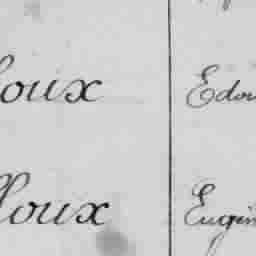 oux Edou
loux Eugén